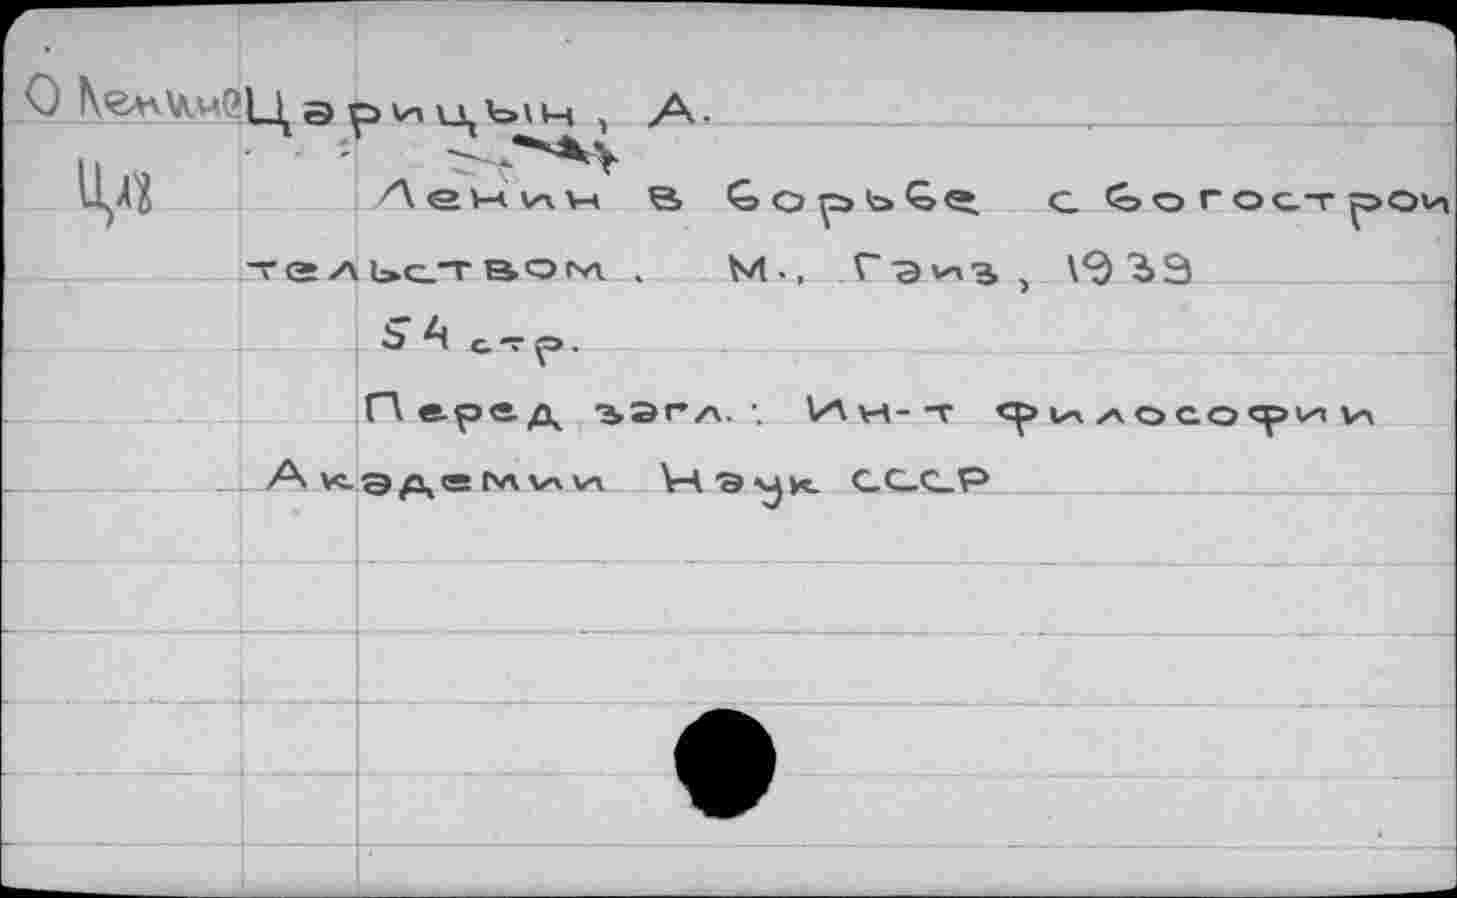 О Ленине Царицын, А.
ЦЛ Ленин в борьбе с богострои
тельством. М., Гаиз, 1933
54 стр.
Перед загл.: Ин-т философии
Академии Наук СССР